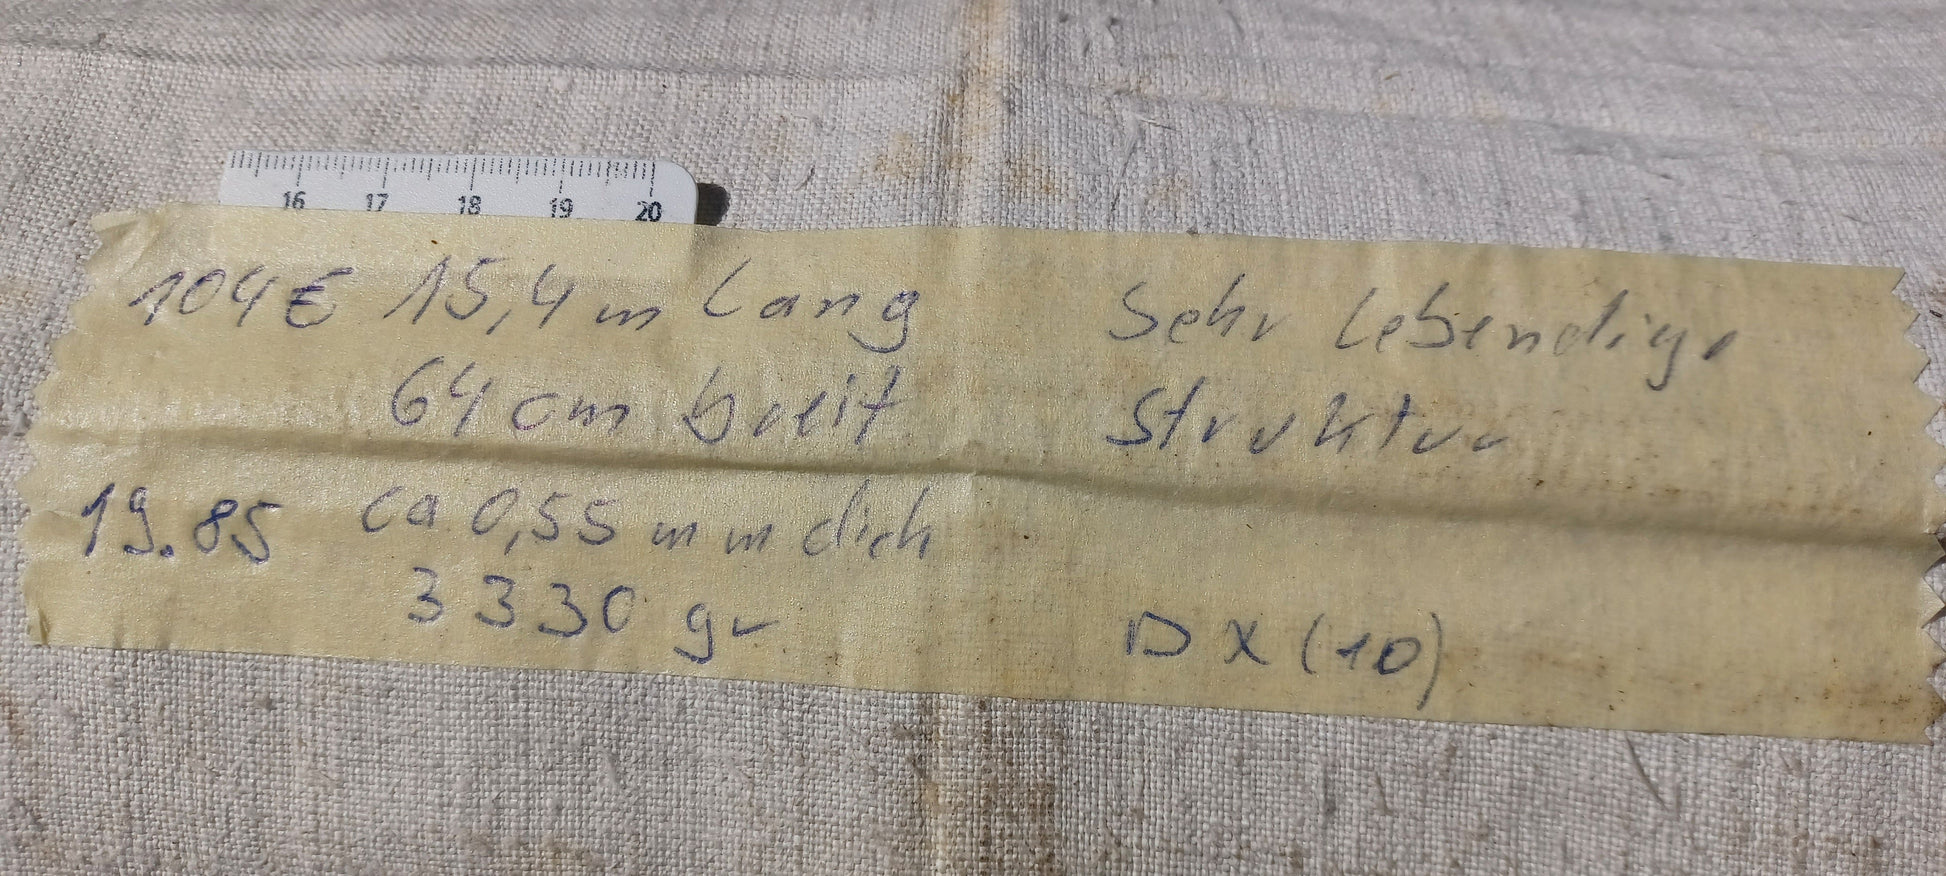 16 17 18 19 20
104€ 15,4 m Lang
64 cm breit
19.85 ca 0,55 mm dick
3330 gr
Sehr lebendige
Struktur
D X (10)